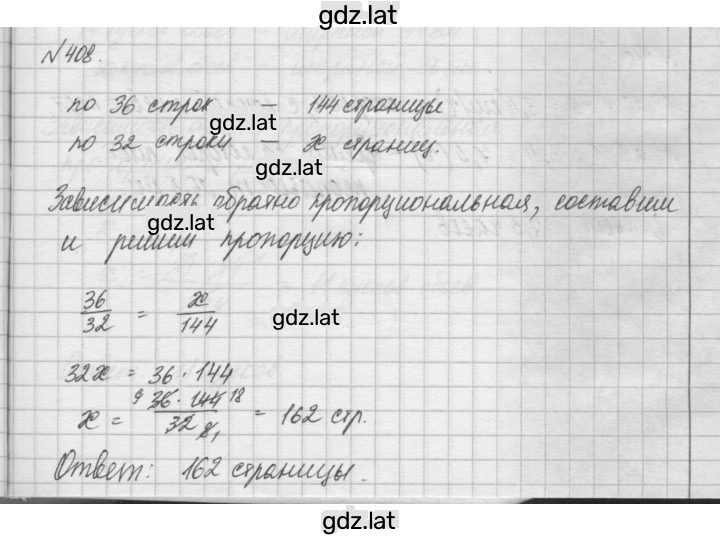 gdz.lat
№ 408.
по 36 строк — 144 страницы
gdz.lat
по 32 строки — x страниц.
gdz.lat
Зависимость обратно пропорциональная, составим
gdz.lat
и решим пропорцию:
36/32 = x/144
gdz.lat
32x = 36 · 144
x = 9 36 · 144 18 / 32 8 1 = 162 стр.
gdz.lat
Ответ: 162 страницы.
gdz.lat